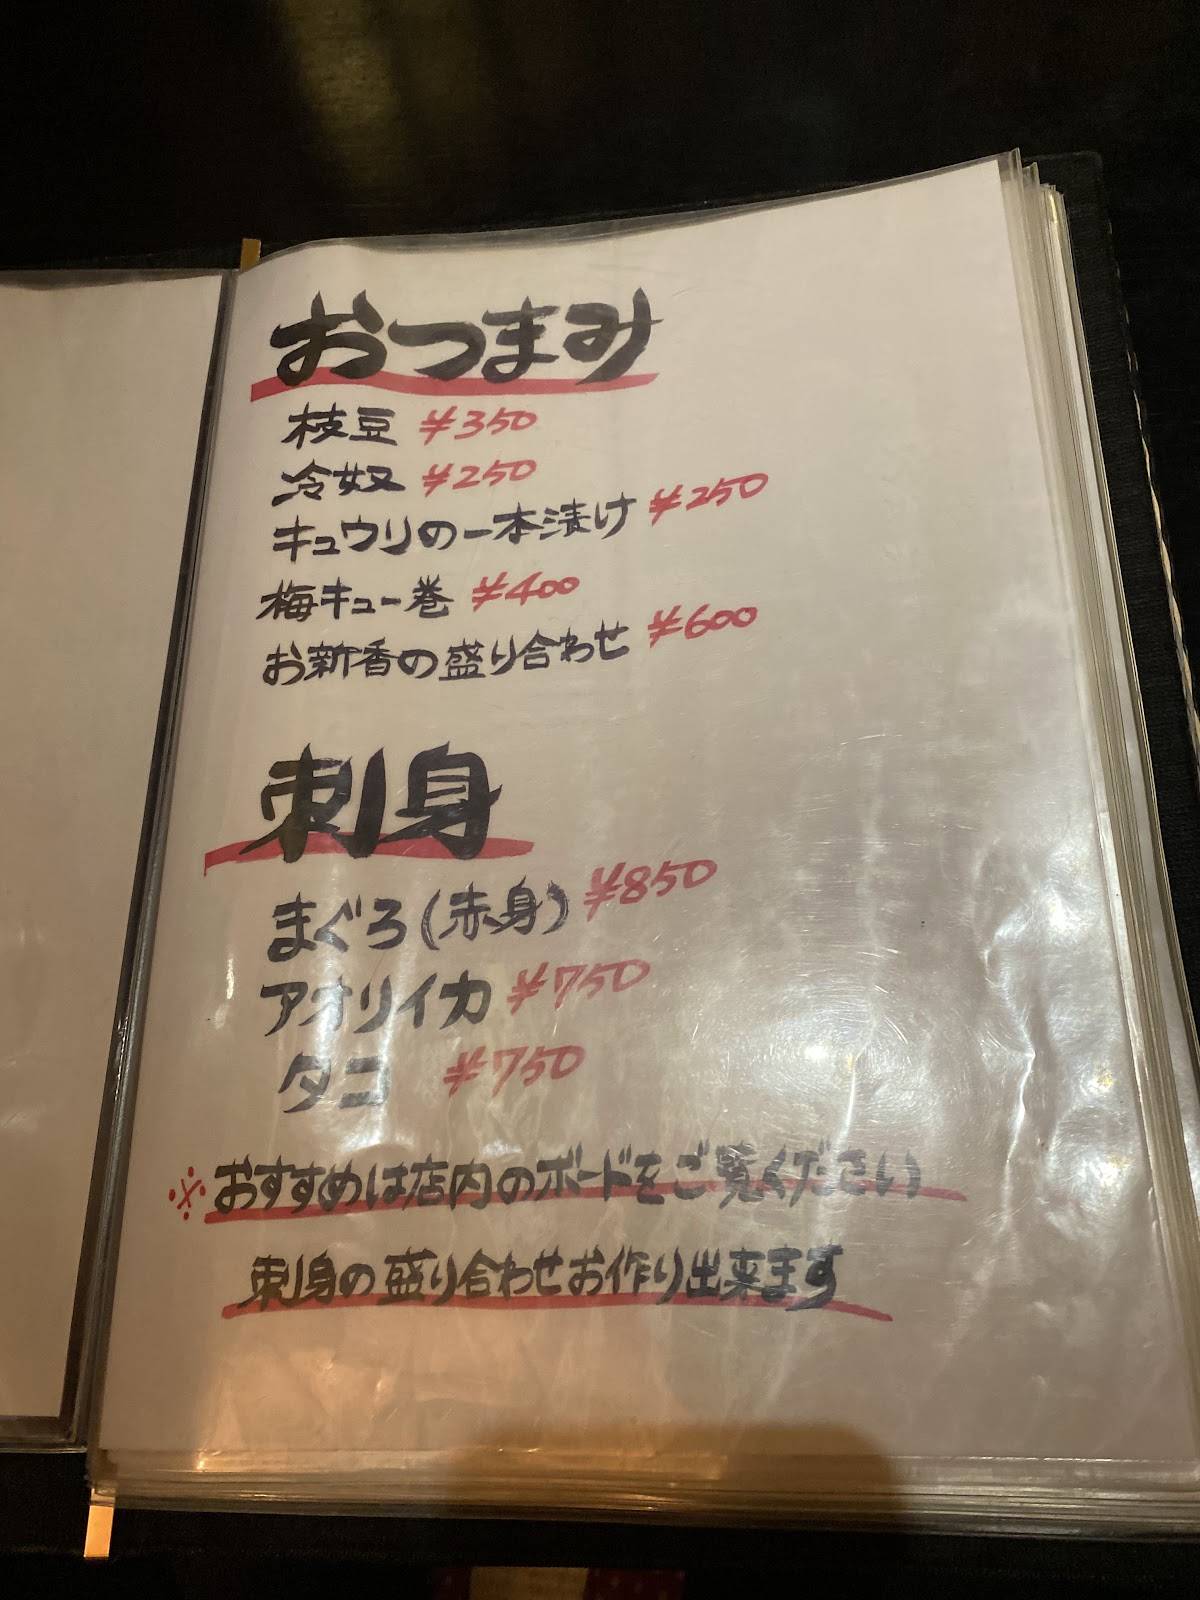 おつまみ
枝豆 ¥350
冷奴 ¥250
キュウリの一本漬け ¥250
梅キュー巻 ¥400
お新香の盛り合わせ ¥600
刺身
まぐろ(赤身) ¥850
アオリイカ ¥750
タコ ¥750
※おすすめは店内のボードをご覧ください
刺身の盛り合わせお作り出来ます